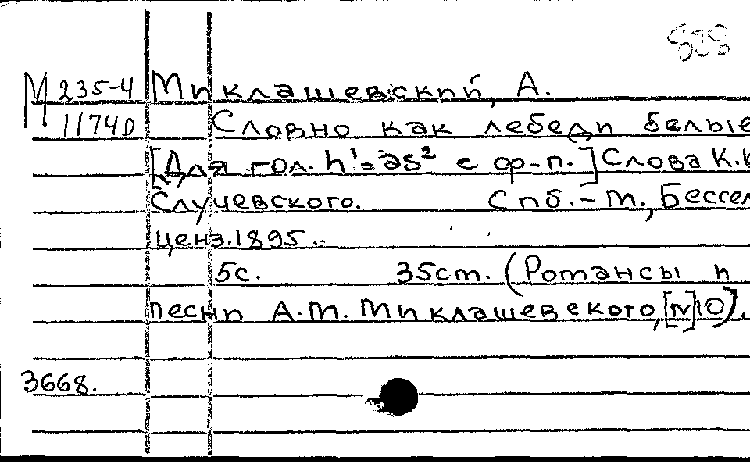 М 235-4 Миклашевский, А.
11740 Словно как лебеди белые
[Для гол. h¹-as² с ф-п.] Слова К.К
Случевского. Спб.-М., Бессел
ценз. 1895.
5с. 35см. (Романсы и
песни А.М. Миклашевского, [N]10).
3668.